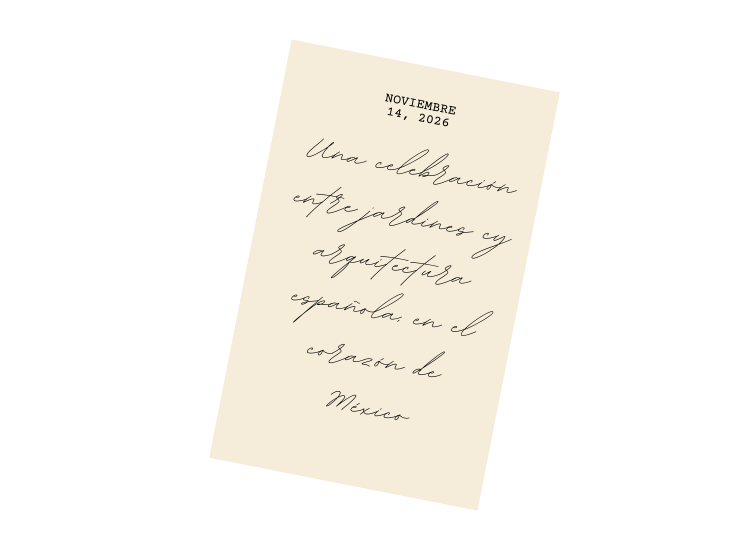 NOVIEMBRE
14, 2026
Una celebración
entre jardines y
arquitectura
española, en el
corazón de
México